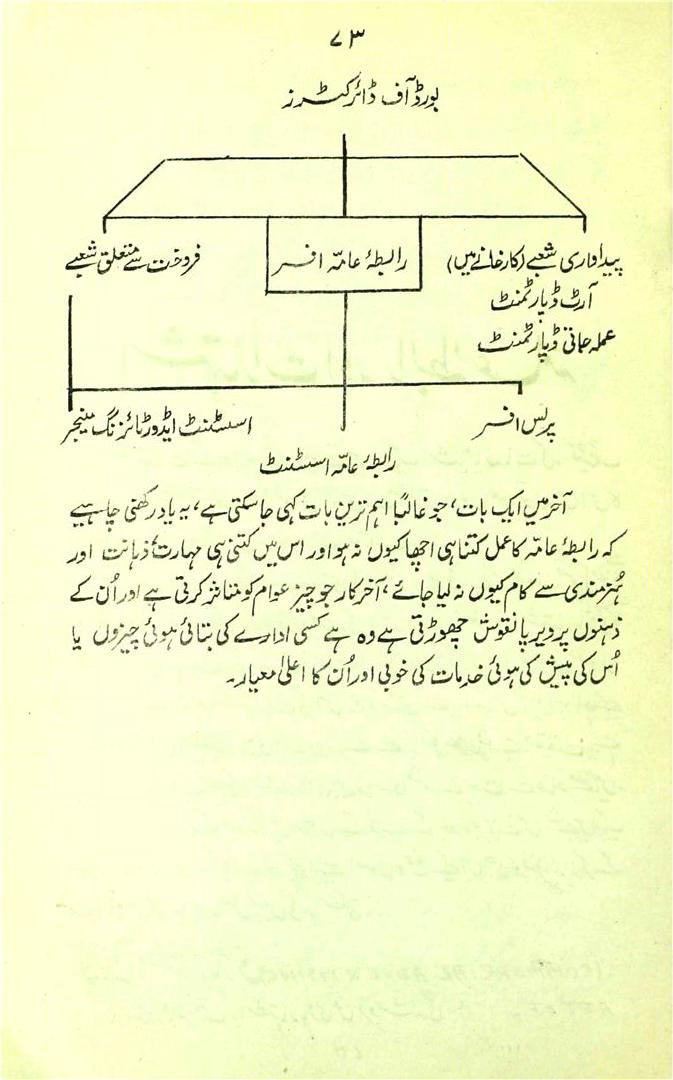 ۷۳
بورڈ آف ڈائرکٹرز
پیداواری شعبے (کارخانے میں)
رابطۂ عامہ افسر
فروخت سے متعلق شعبے
آرٹ ڈپارٹمنٹ
عملہ جاتی ڈپارٹمنٹ
پریس افسر
اسسٹنٹ ایڈورٹائزنگ منیجر
رابطۂ عامہ اسسٹنٹ
آخر میں ایک بات، جو غالباً اہم ترین بات کہی جا سکتی ہے، یہ یاد رکھنی چاہیے
کہ رابطۂ عامہ کا عمل کتنا ہی اچھا کیوں نہ ہو اور اس میں کتنی ہی مہارت، ذہانت اور
ہنرمندی سے کام کیوں نہ لیا جائے، آخرکار جو چیز عوام کو متاثر کرتی ہے اور اُن کے
ذہنوں پر دیرپا نقوش چھوڑتی ہے وہ ہے کسی ادارے کی بنائی ہوئی چیزوں یا
اُس کی پیش کی ہوئی خدمات کی خوبی اور اُن کا اعلیٰ معیار۔